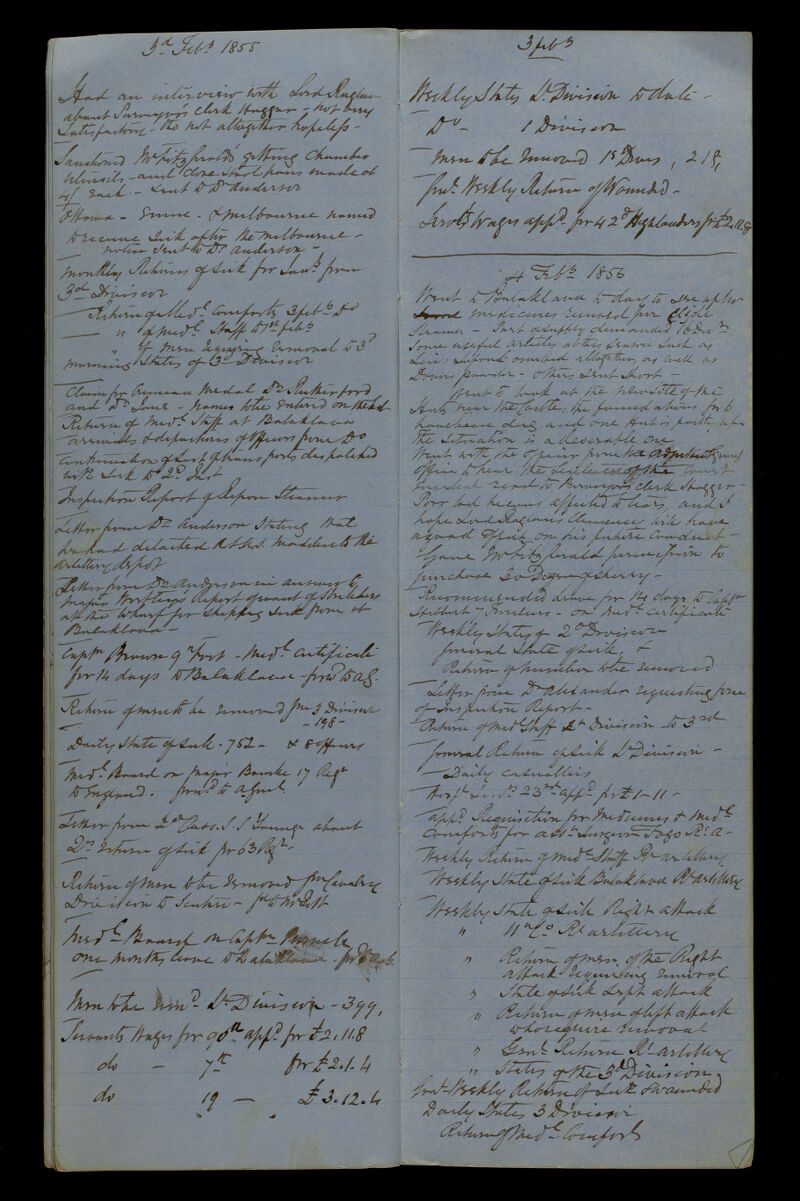 3d Feby 1855
Had an interview with Lord Raglan
about Purveyor's Clerk Haggar - not very
satisfactory - tho not altogether hopeless -
Sanctioned Mr Fitzgerald's getting chamber
utensils - and close stool pans made at
4/ each - sent to Dr Anderson
Ottawa - Emue - & Melbourne named
to receive sick after the Melbourne -
notice sent to Dr Anderson -
Monthly Returns of Sick for Jany from
3d Division
Return of Medl Comforts 3 Feby Do
" of Medl Staff to 1st Feby
" of men requiring removal to 3d
morning States of 3d Division
Claim for Crimean Medal Dr Rutherford
and Dr Jane - names to be entered on the list
Return of Medl Staff at Balaklava
arrivals & departures of officers from Do
Continuation of List of transports despatched
with Sick to 2d Inst
Inspection Report of Ripon Steamer
Letter from Dr Anderson stating that
he had detached to the
artillery depot
Letter from Dr Anderson in answer to
Major Report of want of stretchers
at the wharf for shipping sick from at
Balaklava -
Captn Brown 9th Foot - Medl Certificate
for 14 days to Balaklava - forwd to AG.
Return of men to be removed from 3 Division
- 198 -
Daily State of Sick - 752 - & 8 officers
Medl Board on Major Bourke 17 Regt
to England. forwd to
Letter from 2d Class S. S. Young about
2n return of sick for 63 Regt -
Return of men to be removed from Cavalry
Division to Scutari -
Medl Board on Captn
one months leave to Balaklava - for to AG
Men to be remd Lt Division - 399,
Servants Wages for 90th appd for £2.11.8
do - 7th for £2.1.4
do 19 - £3.12.4
3 feby
Weekly States Lt Division to date -
Do - 1 Division
Men to be removed 1st Divn, 218,
Genl Weekly Return of Wounded -
Servts Wages appd for 42d Highlanders for £2.11.8
4 Feby 1855
Went to Balaklava to day to see after
medicines removed per Clyde
Steamer - Part of supply demanded
some useful articles at this season such as
omitted altogether, as well as
Dovers powder - others sent short -
Went to look at the new site of the
Huts near the Castle, the foundations for 6
have been dug and one Hut is partly up -
the situation is a desirable one
Went with the officer
officer to hear the sentence of the Court
martial read to Purveyor's clerk Haggar -
Poor lad he was affected to tears, and I
hope Lord Raglan's clemency will have
a good effect on his future conduct -
Gave Mr Fitzgerald permission to
purchase 30 Dozen of Sherry -
Recommended leave for 14 days to Captn
Hibbert - Fusileers - on Medl certificate
Weekly States of 2d Division
general State of Sick, &
Return of number to be removed
Letter from Dr Alexander requesting form
of Inspection Report -
Return of Medl Staff Lt Division to 3rd
General Return of Sick Lt Division -
Daily casualties
23rd appd for £1 - 11 -
appd Requisition for Medicines & Medl
Comforts for asst Surgeon Fogo Rl A -
Weekly Return of Medl Staff Rl artillery
Weekly State of Sick Balaklava Rl artillery
Weekly State of Sick Right attack
" Co Rl artillery
" Return of men of the Right
attack requiring removal
" State of Sick Left attack
" Return of men of left attack
who require removal
" Genl Return Rl artillery
" States of the 3d Division
Genl Weekly Return of Sick & wounded
Daily States 3 Division
Return of Medl Comforts